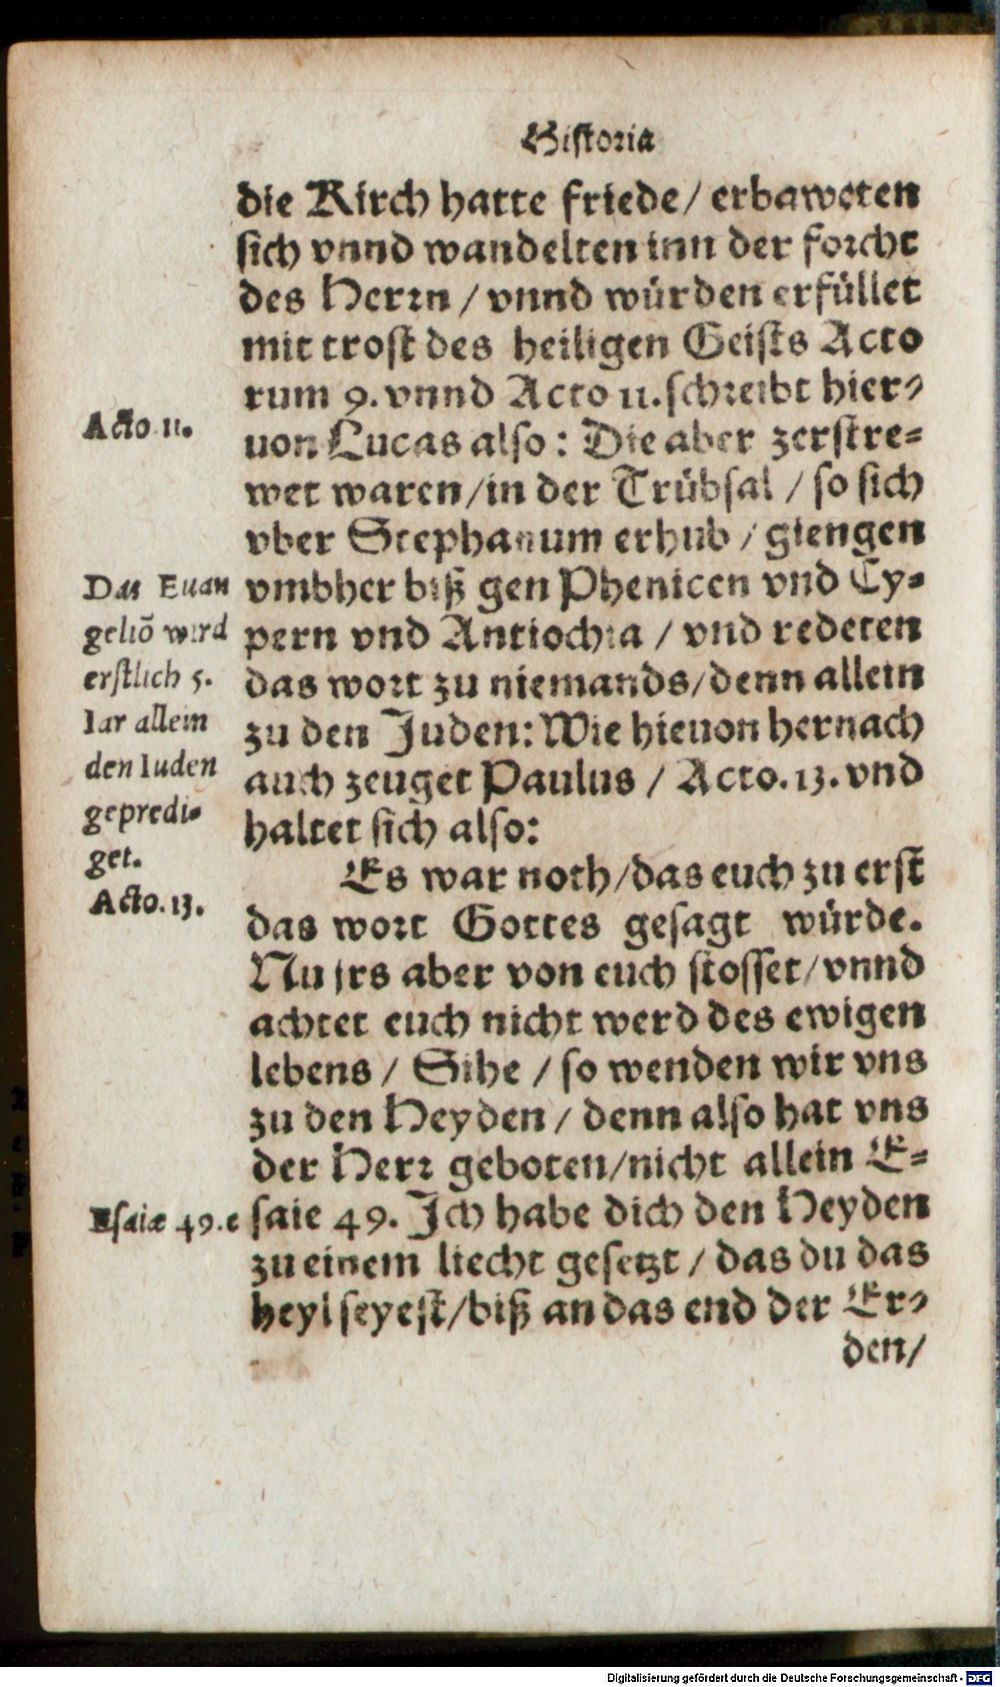 Historia
die Kirch hatte friede/ erbaweten
sich vnnd wandelten inn der forcht
des Herrn / vnnd würden erfüllet
mit trost des heiligen Geists Acto
rum 9. vnnd Acto 11. schreibt hier-
Acto 11.
uon Lucas also: Die aber zerstre-
wet waren/in der Trübsal / so sich
vber Stephanum erhub / giengen
vmbher biß gen Phenicen vnd Cy-
pern vnd Antiochia / vnd redeten
das wort zu niemands/denn allein
zu den Juden: Wie hieuon hernach
auch zeuget Paulus / Acto. 13. vnd
haltet sich also:
Das Euan
geliõ wird
erstlich 5.
Iar allein
den Iuden
gepredi-
get.
Acto. 13.
Es war noth/das euch zu erst
das wort Gottes gesagt würde.
Nu jrs aber von euch stosset/vnnd
achtet euch nicht werd des ewigen
lebens / Sihe / so wenden wir vns
zu den Heyden / denn also hat vns
der Herr geboten/nicht allein E-
Esaiæ 49.c
saie 49. Ich habe dich den Heyden
zu einem liecht gesetzt / das du das
heyl seyest/biß an das end der Er-
den/
Digitalisierung gefördert durch die Deutsche Forschungsgemeinschaft - DFG